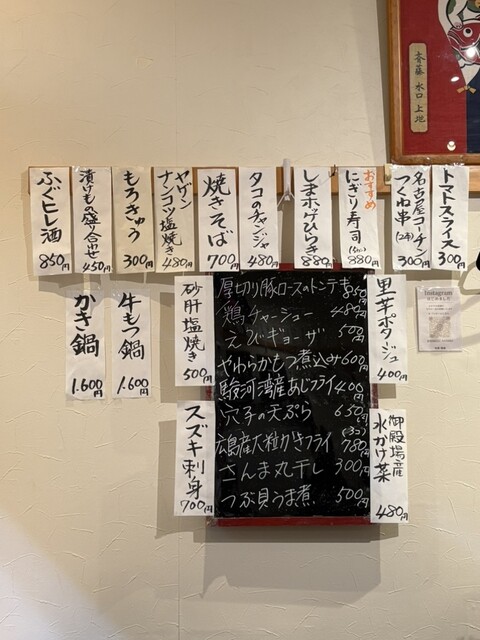 斉藤 水口 上地
トマトスライス 300円
名古屋コーチン
つくね串(2本) 300円
おすすめ
にぎり寿司(5かん) 880円
しまホッケひらき 880円
タコのチャンジャ 480円
焼きそば 700円
ヤゲン
ナンコツ塩焼き 480円
もろきゅう 300円
漬けもの盛り合せ 450円
ふぐヒレ酒 850円
里芋ポタジュ 400円
砂肝塩焼き 500円
牛もつ鍋 1.600円
かき鍋 1.600円
厚切り豚ロースのトンテキ 850円
鶏チャーシュー 480円
えびギョーザ 500円
やわらかもつ煮込み 600円
駿河湾産あじフライ 400円
穴子の天ぷら 650円
広島産大粒かきフライ(3コ) 780円
さんま丸干し 300円
つぶ貝うま煮 500円
御殿場産
水かけ菜 480円
スズキ刺身 700円
Instagram